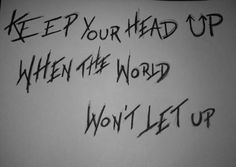 KEEP YOUR HEAD UP
WHEN THE WORLD
WON'T LET UP